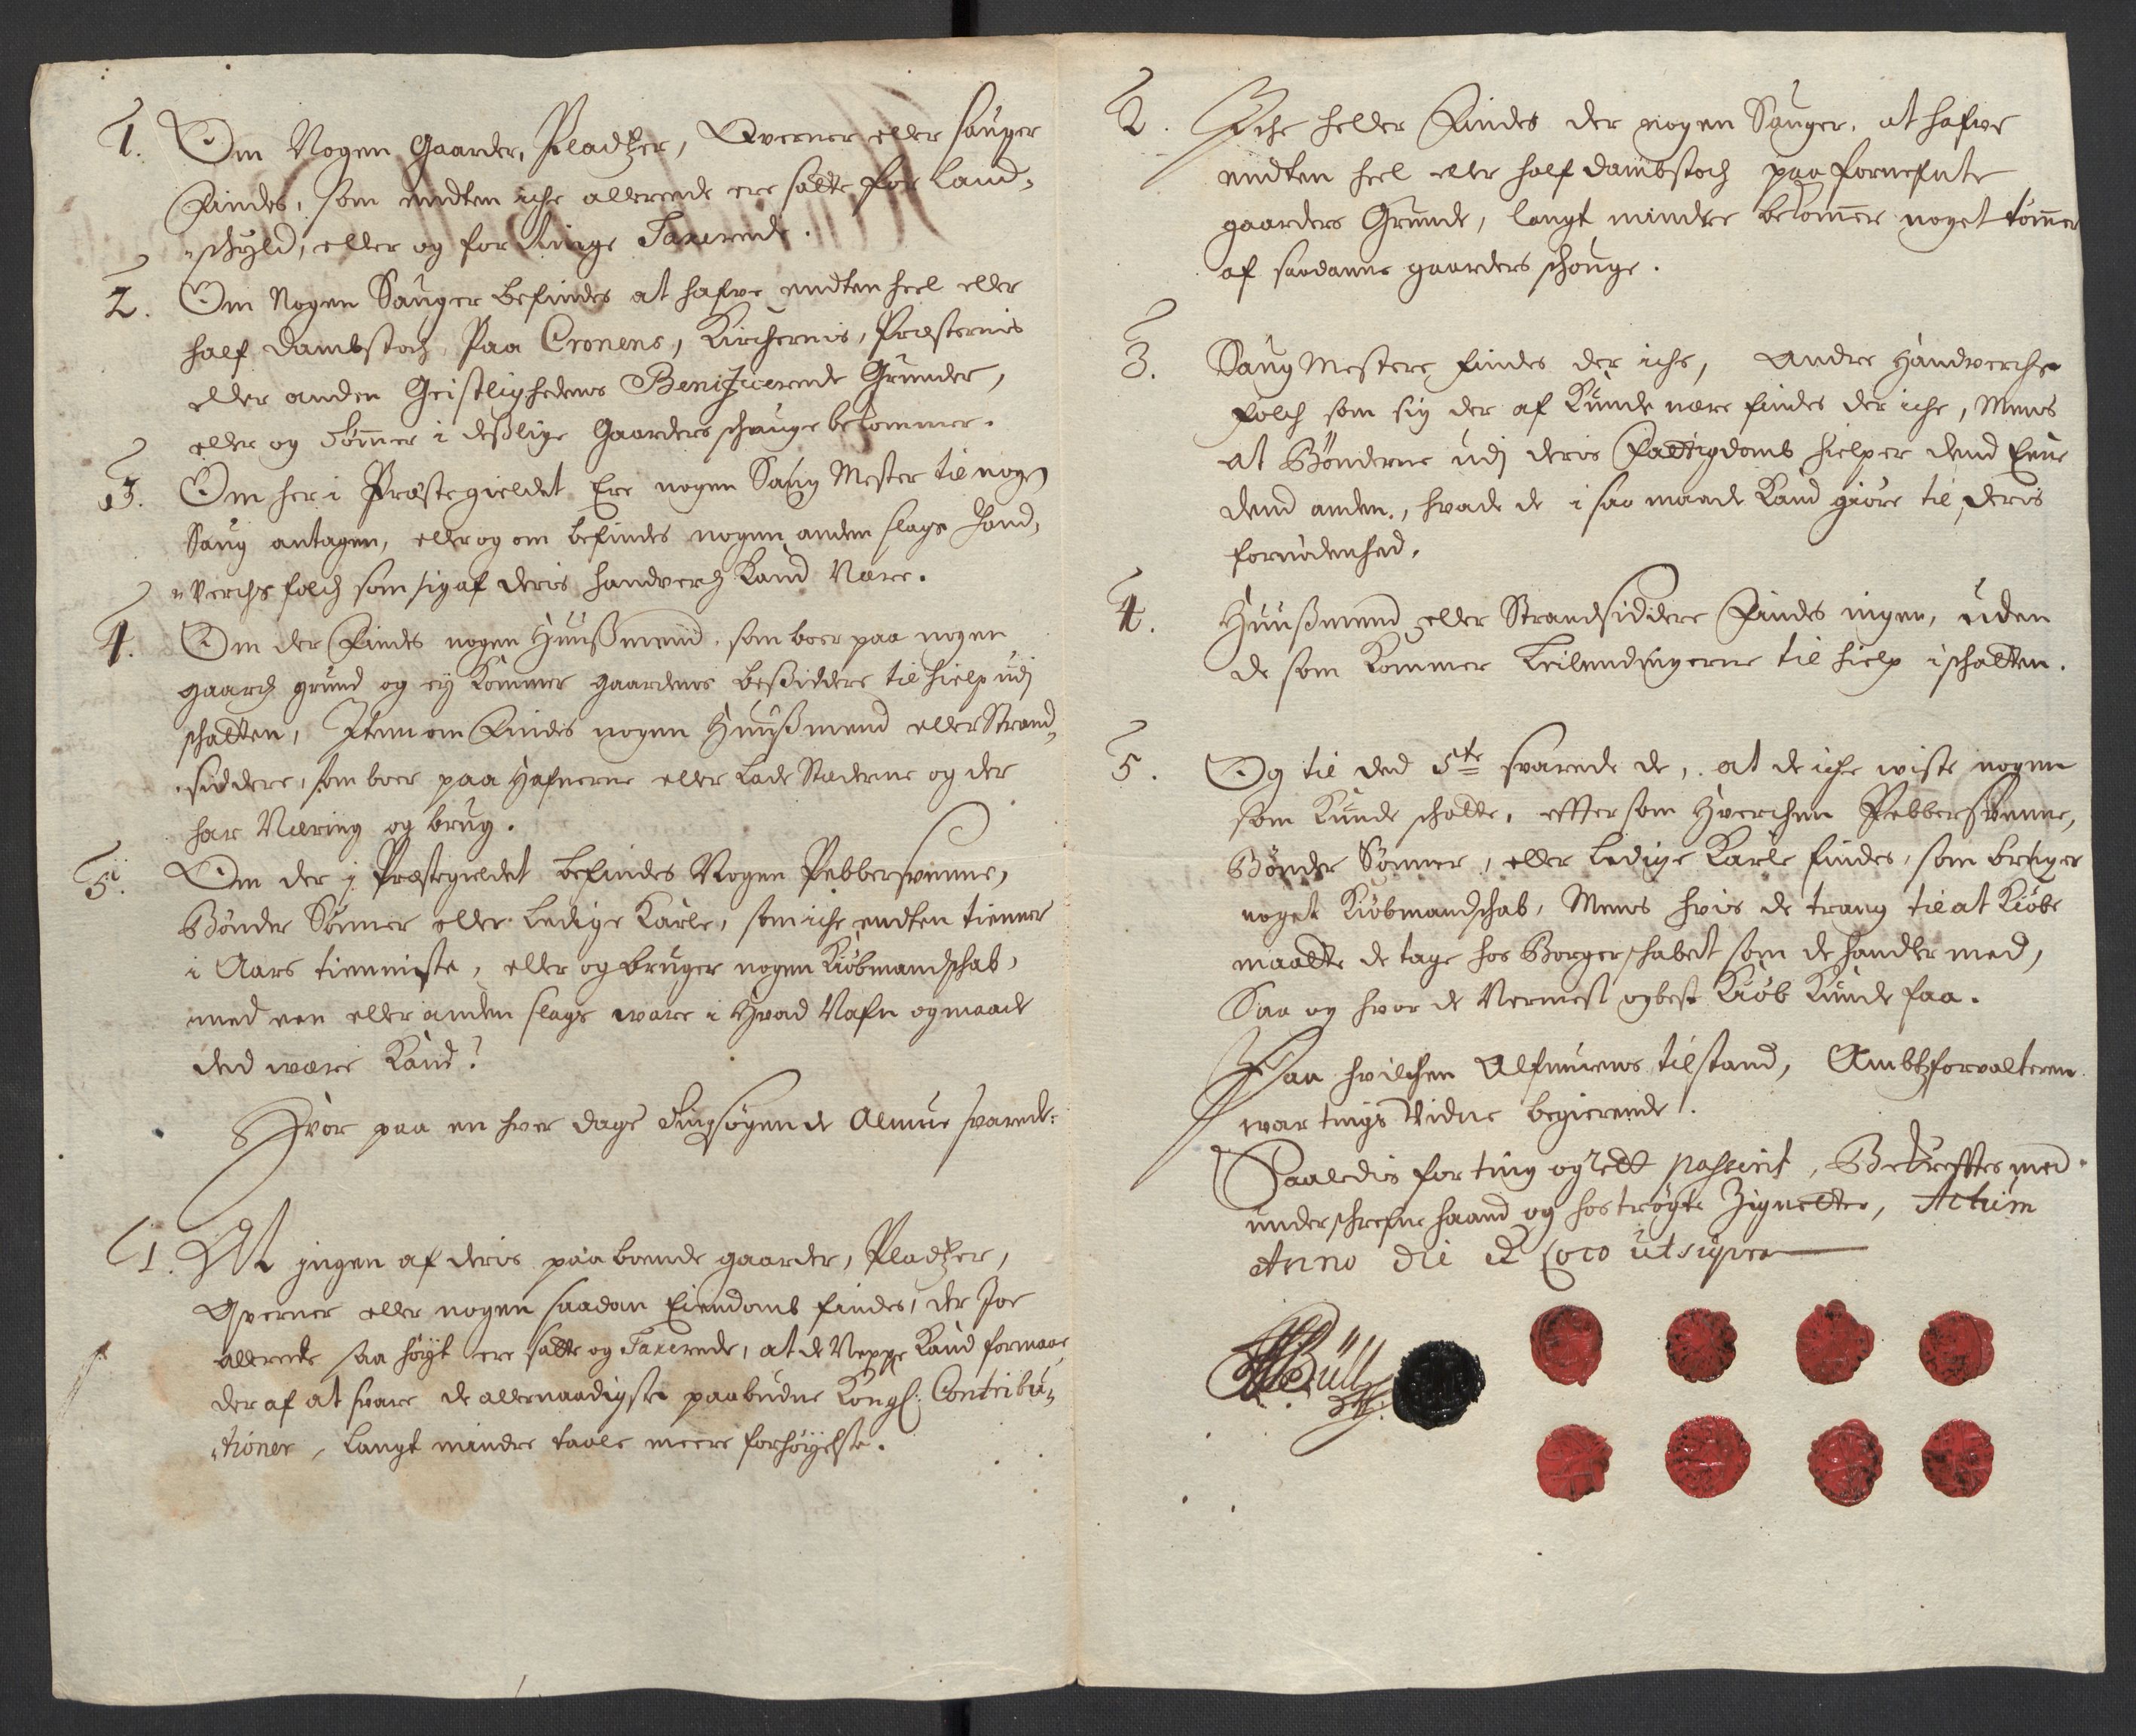 1. Om Nogen Gaarder, Pladtzer, Qverner eller sauger
Findes, som endten iche allerede ere satte for Land„
„schyld, eller og for ringe Taxerede.
2. Om Nogen Sauger befindes at hafve endten heel eller
half Dambstoch, Paa Cronens, Kirchernis, Præsternis
eller anden Geistlighedens Beneficerede Grunder,
eller og Tømmer i deßlige Gaarders schouge bekommer.
3. Om her i Præstegieldet Ere nogen Saug Mester til nogen
Saug antagen, eller og om befindes nogen anden slags Hand„
„verchs folch som sig af deris handverch Kand Nære.
4. Om der Findes nogen Huußmend, som boer paa nogen
gaards grund og ey Kommer gaardenes beßiddere til hielp udj
schatten, Item om Findis nogen Huußmend eller Strand„
„siddere, som boer paa Hafnerne eller Lade Stæderne og der
har Næring og brug.
5. Om der j Præstegieldet befindes Nogen Pebbersvenne,
Bønder Sønner eller Ledige Karle, som iche endten tienner
i Aars tienniste, eller og bruger nogen Kiøbmandschab,
med een eller anden slags ware i Hvad Nafn og maade
ded være Kand?
Hvor paa en hver dags Tingsøgende Almue svarede:
1. At jngen af deris paaboende gaarder, Pladtzer,
Qverner eller nogen saadan Eiendomb findes, der Joe
allerede saa høyt ere satte og Taxerede, at de Neppe Kand formaae
der af at svare de allernaadigste paabudne Kongl: Contribu„
„tioner, langt mindre taale meere forhøyelse.
2. Iche heller Findes der nogen Sauger, at hafve
endten heel eller half dambstoch paa fornefnte
gaarders Grunde, langt mindre bekommer noget tømmer
af saadanne gaarders schouge.
3. Saug Mestere findes der iche, Andre Handverchs
folch som sig der af Kunde nære findes der iche, Mens
at Bønderne udj deris Fattigdomb hielper dend Eene
dend anden, hvade de i saa maade Kand giøre til deris
fornødenhed.
4. Huußmend eller Strandsiddere Findes ingen, uden
de som Kommer Leilendingerne til hielp i schatten.
5. Og til ded 5te svarede de, at de iche wiste nogen
som Kunde schatte, effter som Hverchen Pebbersvenne,
Bønder Sønner, eller Ledige Karle findes, som bruger
noget Kiøbmandschab, Mens hvis de trang til at Kiøbe
maatte de tage hos Borgerschabet som de handler med,
Saa og hvor de Nermest og best Kiøb Kunde faa.
Paa hvilchen Alfmuens tilstand, Ambtzforvalteren
war tings Vidne begierende.
Saaledis for ting og rett passerit, Bekreffter med
underschrefne haand og hostrøgte Zignetter, Actum
Anno Die et Loco ut supra